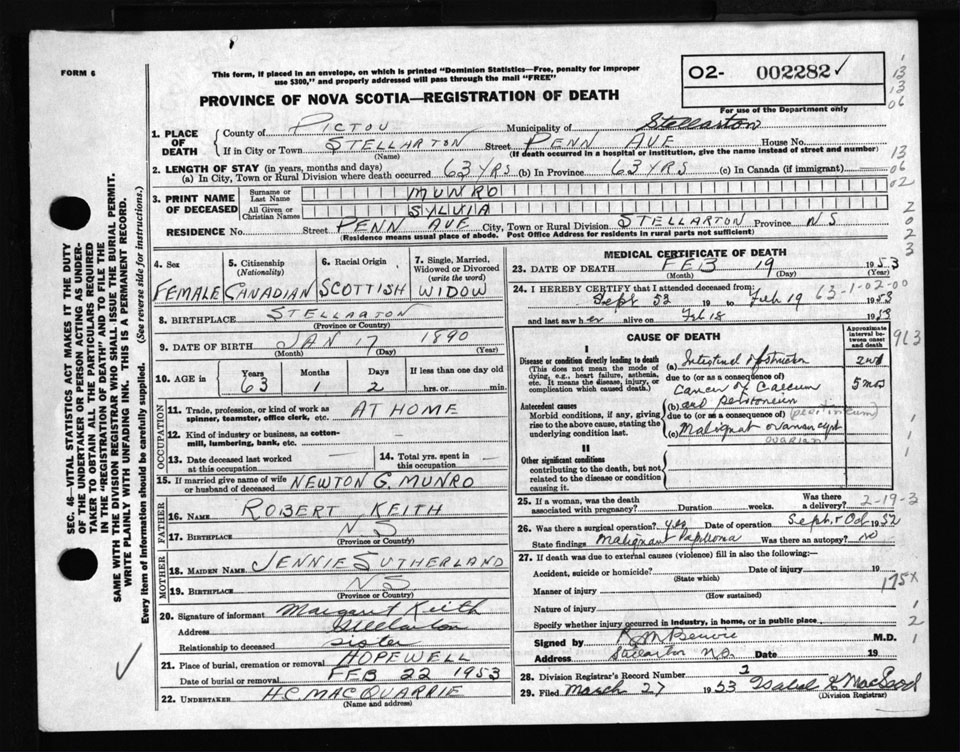 FORM 6
This form, if placed in an envelope, on which is printed "Dominion Statistics—Free, penalty for improper
use $300," and properly addressed will pass through the mail "FREE"
PROVINCE OF NOVA SCOTIA—REGISTRATION OF DEATH
O2- 002282 ✓
For use of the Department only
1. PLACE OF DEATH
County of PICTOU Municipality of Stellarton
If in City or Town STELLARTON Street PENN AVE House No.
(Name) (If death occurred in a hospital or institution, give the name instead of street and number)
2. LENGTH OF STAY (in years, months and days)
(a) In City, Town or Rural Division where death occurred 63 YRS (b) In Province 63 YRS (c) In Canada (if immigrant)
3. PRINT NAME OF DECEASED
Surname or Last Name MUNRO
All Given or Christian Names SYLVIA
RESIDENCE No. Street PENN AVE City, Town or Rural Division STELLARTON Province NS
(Residence means usual place of abode. Post Office Address for residents in rural parts not sufficient)
SEC. 46—VITAL STATISTICS ACT MAKES IT THE DUTY
OF THE UNDERTAKER OR PERSON ACTING AS UNDER-
TAKER TO OBTAIN ALL THE PARTICULARS REQUIRED
IN THE "REGISTRATION OF DEATH" AND TO FILE THE
SAME WITH THE DIVISION REGISTRAR WHO SHALL ISSUE THE BURIAL PERMIT.
WRITE PLAINLY WITH UNFADING INK. THIS IS A PERMANENT RECORD.
Every item of Information should be carefully supplied. (See reverse side for instructions.)
4. Sex FEMALE
5. Citizenship (Nationality) CANADIAN
6. Racial Origin SCOTTISH
7. Single, Married, Widowed or Divorced (write the word) WIDOW
8. BIRTHPLACE STELLARTON
(Province or Country)
9. DATE OF BIRTH JAN 17 1890
(Month) (Day) (Year)
10. AGE in Years 63 Months 1 Days 2 If less than one day old hrs. or min.
OCCUPATION
11. Trade, profession, or kind of work as spinner, teamster, office clerk, etc. AT HOME
12. Kind of industry or business, as cotton-mill, lumbering, bank, etc. —
13. Date deceased last worked at this occupation —
14. Total yrs. spent in this occupation —
15. If married give name of wife or husband of deceased NEWTON G. MUNRO
FATHER
16. NAME ROBERT KEITH
17. BIRTHPLACE NS
(Province or Country)
MOTHER
18. MAIDEN NAME JENNIE SUTHERLAND
19. BIRTHPLACE NS
(Province or Country)
20. Signature of informant Margaret Keith
Address Stellarton
Relationship to deceased sister
21. Place of burial, cremation or removal HOPEWELL
Date of burial or removal FEB 22 1953
22. UNDERTAKER H.C. MACQUARRIE
(Name and address)
MEDICAL CERTIFICATE OF DEATH
23. DATE OF DEATH FEB 19 1953
(Month) (Day) (Year)
24. I HEREBY CERTIFY that I attended deceased from:
Sept 52 19 to Feb 19 1953
63-1-02-00
and last saw her alive on Feb 18 1953
CAUSE OF DEATH
Approximate interval between onset and death
I
Disease or condition directly leading to death
(This does not mean the mode of dying, e.g., heart failure, asthenia, etc. It means the disease, injury, or complication which caused death.)
(a) Intestinal Obstruction
due to (or as a consequence of)
Cancer of Caecum 5 mos
(b) and peritoneum
Antecedent causes
Morbid conditions, if any, giving rise to the above cause, stating the underlying condition last.
due to (or as a consequence of)
(c) Malignant ovarian cyst
ovarian
II
Other significant conditions
contributing to the death, but not related to the disease or condition causing it.
25. If a woman, was the death associated with pregnancy? Duration weeks. Was there a delivery?
2-19-3
26. Was there a surgical operation? yes Date of operation Sept. & Oct 1952
State findings Malignant Papiloma Was there an autopsy? NO
27. If death was due to external causes (violence) fill in also the following:—
Accident, suicide or homicide? Date of injury 19
(State which)
Manner of injury
(How sustained)
175X
Nature of injury
Specify whether injury occurred in industry, in home, or in public place.
Signed by M.D.
Address Stellarton N.S. Date 19
28. Division Registrar's Record Number 2
29. Filed March 27 1953 Isabel K MacLeod
(Division Registrar)